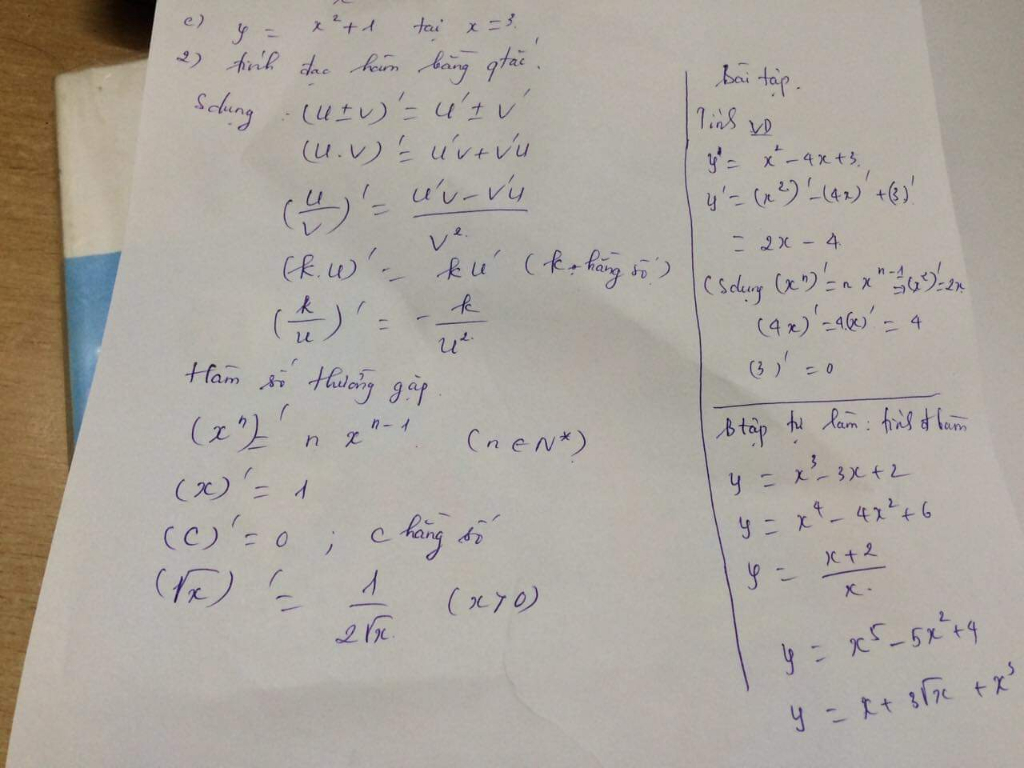 c) y = x² + 1 tại x = 3.
2) tính đạo hàm bằng qtắc.
Sdụng : (u ± v)' = u' ± v'
(u.v)' = u'v + v'u
(u/v)' = (u'v - v'u)/v²
(k.u)' = k u' (k hằng số)
(k/u)' = - k/u²
Hàm số thường gặp
(xⁿ)' = n xⁿ⁻¹ (n ∈ N*)
(x)' = 1
(C)' = 0 ; C hằng số
(√x)' = 1/(2√x) (x > 0)
Bài tập.
Tính VD
y' = x² - 4x + 3.
y' = (x²)' - (4x)' + (3)'
= 2x - 4
(Sdụng (xⁿ)' = n xⁿ⁻¹ => (x²)' = 2x
(4x)' = 4(x)' = 4
(3)' = 0
B tập tự làm : tính đ hàm
y = x³ - 3x + 2
y = x⁴ - 4x² + 6
y = (x+2)/x.
y = x⁵ - 5x² + 4
y = x + 3√x + x³